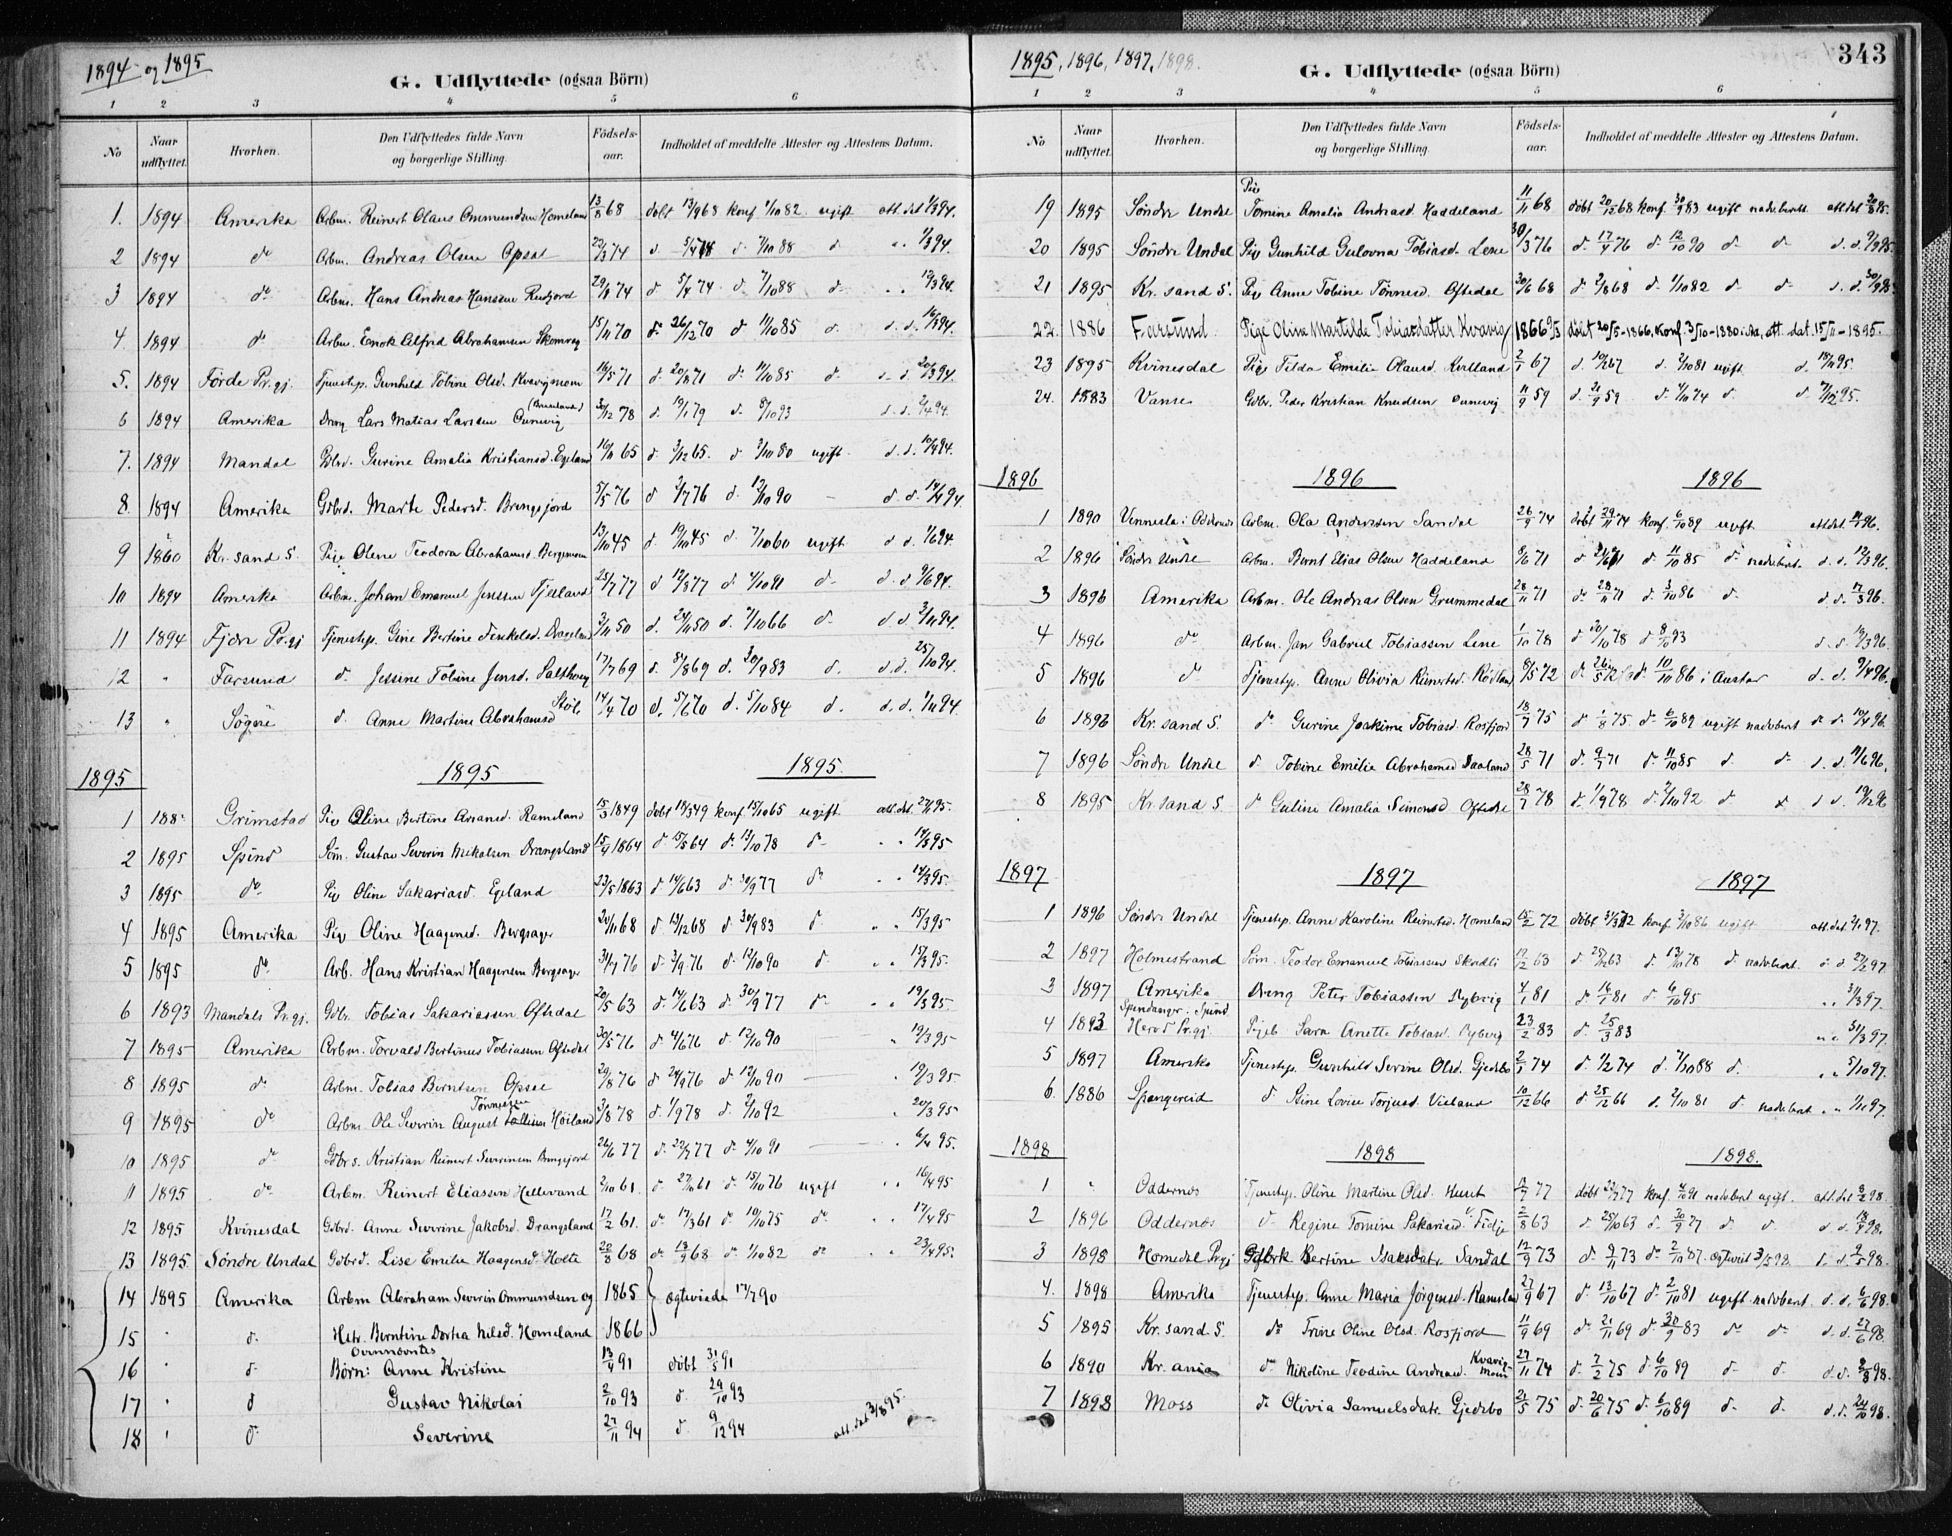 1894 og 1895
G. Udflyttede (ogsaa Börn)
1 2 3 4 5 6
No Naar udflyttet. Hvorhen. Den Udflyttedes fulde Navn og borgerlige Stilling. Födsels-aar. Indholdet af meddelte Attester og Attestens Datum.
1. 1894 Amerika Arbm. Reinert Olaus Ommundsen Homeland 13/8 68 döbt 13/9 68 konf. 1/10 82 ugift att. dat. 1/3 94.
2 1894 do Arbm. Andreas Olsen Opsal 23/3 74 d. d. 7/10 88 d. 1/3 94.
3 1894 do Arbm. Hans Andreas Hanssen Rosfjord 74 d. 5/4 74 d. 7/10 88 d. 12/3 94.
4 1894 do Arbm. Enok Alfred Abrahamsen 15/11 70 d. 26/12 70 d. 11/10 85 d. d. d. 16/3 94.
5. 1894 Förde Pr.gj. Tjenestep. Gunhild Tobine Olsd. Kvavigmoen 71 d. 20/8 71 d. 11/10 85 d. d. d. 20/3 94.
6 1894 Amerika Dreng Lars Matias Larssen 31/12 78 d. 19/1 79 d. 8/10 93 d. d. 2/4 94.
7. 1894 Mandal Gdbrd. Gurine Amalia Kristiansd. Egeland 16/11 65 d. 3/12 65. d. 3/10 80 ugift d. d. 10/4 94.
8. 1894 Amerika Gdbrd. Marte Pedersd. Brengsfjord 5/5 76 d. 2/7 76 d. 12/10 90 - d. d. 14/4 94.
9 1860 Kr.sand S. Pige Olene Teodora Abrahamsd. Bergsmoen 13/10 45 d. 19/10 45 d. 7/10 60 ugift d. d. 1/6 94.
10 1894 Amerika Arbm. Johan Emanuel Jenssen Fjelland 25/7 77 d. 12/8 77 d. 4/10 91 d. d. d. 9/6 94.
11 1894 Fjære Pr.gj Tjenestep. Gine Bertine Terkelsd. 3/11 50 d. 24/11 50 d. 7/10 66 d. d. d. 94.
12 " Farsund d. Jessine Tobine Jensd. 17/7 69 d. 8/8 69 d. 30/9 83 d. d. d. 25/10 94.
13 " Sögne d. Anne Martine Abrahamsd. Stöle 14/4 70 d. 5/6 70 d. 5/10 84 d. d. d. 1/11 94.
1895 1895 1895.
1 188 Grimstad Pige Oline Bertine Ramsland 15/3 1849 döbt 19/3 49 konf. 15/10 65 ugift att. dat. 95.
2 1895 Spind Söm. Gustav Severin Mikalsen Drangsland 15/4 1864 d. 15/5 64 d. 13/10 78 d. " " 14/3 95
3 1895 do Pige Oline Sakariasd. Egeland 23/5 1863 d. 14/6 63 d. 30/9 77 d. " " 14/3 95.
4 1895 Amerika Pige Oline Haagensd. Bergsager 20/11 68 d. 13/12 68 d. 30/9 83 d. " " 15/3 95
5 1895 do Arb. Hans Kristian Haagensen Bergsager 31/7 76 d. 3/9 76 d. 12/10 90 d. " " 15/3 95.
6 1893 Mandals Pr.gj. Gdbr. Tobias Sakariassen Oftedal 20/5 63 d. 14/6 63 d. 30/9 77 d. " " 19/3 95-
7 1895 Amerika Arbm. Torvald Bertinus Tobiassen Oftedal 30/5 76 d. 4/6 76 d. 12/10 90 " 19/3 95
8 1895 d. Arbm. Tobias Berntsen Opsal 29/8 76 d. 24/9 76 d. 12/10 90 " 19/3 95.
Tönnesen
9 1895 do Arbm. Ole Severin August Höiland 3/8 78 d. 1/9 78 d. 2/10 92 " 20/3 95
10 1895 do Gdbrs. Kristian Reinert Severinsen 26/6 77 d. 29/7 77 d. 4/10 91 " 6/4 95.
11 1895 do Arbm. Reinert Eliassen Hellevand 2/10 61. d. 27/10 61 d. 15/10 76 ugift " " 16/4 95
12 1895 Kvinesdal Gdbrd. Anne Severine Jakobsd. Drangsland 17/2 61. d. 17/3 61 d. 10/10 75 do " " 17/4 95
13 1895 Söndre Undal Gdbrd. Lise Emilie Haagensd. Holte 20/8 68 d. 13/9 68 d. 1/10 82 do " " 23/4 95.
14 1895 Amerika Arbm Abraham Severin Ommundsen og 1865 ægteviede 17/7 90
15 " d. Hstr. Berntine Dortea Nilsd. Homeland 1866
Ovennævntes
16 " d. Börn: Anne Kristine 13/4 91 döbt 31/5 91
17 " d Gustav Nikolai 2/10 93 d. 29/10 93
18 " d. Severine 27/11 94 d. 9/12 94 att. dat. 3/8 95.
1895, 1896, 1897, 1898.
343
G. Udflyttede (ogsaa Börn)
1 2 3 4 5 6
No Naar udflyttet. Hvorhen. Den Udflyttedes fulde Navn og borgerlige Stilling. Födsels-aar. Indholdet af meddelte Attester og Attestens Datum.
Pige
19 1895 Söndre Undal Tomine Amalia Andreasd. Haddeland 11/11 68 döbt 20/12 68 konf. 30/9 83 ugift nadvberet. att. dat. 20/8 95.
20 1895 Söndre Undal Pige Gunhild Gulovna Tobiasd. Lene 30/3 76 d. 17/4 76 d. 12/10 90 d. d. d. d. 9/9 95
21 1895 Kr.sand S. Pige Anne Tobine Tönnesd. Oftedal 30/6 68 d. 2/8 68 d. 1/10 82 d. d. d. d. 30/9 95
22. 1886 Farsund. Pige Oline Martilde Tobiasdatter Kvavig 1866 döbt 20/5-1866, Konf. 3/10-1880 att. dat. 15/11-1895.
23 1895 Kvinesdal Pige Tilda Emilie Olausd. Kvelland 2/1 67 d. 67 d. 2/10 81 ugift d. 18/11 95.
24. 1883 Vanse Gdbr. Peder Kristian Knudsen 11/9 59 d. 21/9 59 d. 4/10 74 d. d. 7/12 95.
1896 1896 1896
1 1890 Vennesla i Oddernes Arbm. Ola Anderssen Sandal 26/9 74 döbt 29/11 74 konf. 6/10 89 ugift att. dat. 96.
2 1896 Söndre Undal Arbm. Bernt Elias Olsen Haddeland 71 d. 71 d. 11/10 85 d. nadvberet. d. d. 12/3 96.
3 1896 Amerika Arbm. Ole Andreas Olsen Grummedal 28/11 71 d. 71 d. 3/10 86 d. d. d. 17/3 96.
4 1896 do Arbm. Jan Gabriel Tobiassen Lene 1/10 78 d. 20/10 78 d. 8/10 93 d. d. 19/3 96.
5 1896 d. Tjenestep. Anne Olivia Reinertsd. 8/5 72 d. 26/5 72 d. 10/10 86 i Austad d. d. 9/4 96.
6 1896 Kr.sand S. do Gurine Joakime Tobiasd. Rosfjord 18/7 75 d. 1/8 75 d. 6/10 89 ugift nadvberet d. d. 10/4 96.
7 1896 Söndre Undal d. Tobine Emilie Abrahamsd. Daaland 28/5 71 d. 9/7 71 d. 11/10 85 d. d. d. d. 11/6 96.
8 1895 Kr.sand S. d. Guline Amalia Simonsd. Oftedal 28/7 78 d. 1/9 78 d. 2/10 92 d. d. d. d. 19/12 96
1897 1897 1897
1 1896 Söndre Undal Tjenestep. Anne Karoline Reinertsd. Homeland 15/2 72 döbt 31/3 72 konf. 3/10 86 ugift att. dat. 97.
2 1897 Holmestrand Söm. Teodor Emanuel Tobiassen Skredli 17/12 63 d. 63 d. 13/10 78 d. nadvberet. d. d. 27/2 97.
3 1897 Amerika Dreng Peter Tobiassen Dybvig 4/1 81 d. 16/1 81 d. 6/10 95 " " 31/3 97.
Spind
4 1893 Herod Pr.gj. Pigeb. Sara Anette Tobiasd. Dybvig 23/2 83 d. 25/3 83 " " 31/3 97.
5 1897 Amerika Tjenestep. Gunhild Serine Olsd. Gjedsbo 2/1 74 d. 1/2 74 d. 7/10 88 d. " " 5/10 97.
6. 1886 Spangereid d. Stine Lovise Torjusd. Vieland 10/12 66 d. 25/12 66 d. 2/10 81 d. nadvberet " " 1/11 97.
1898 1898 1898.
1 " Oddernes Tjenestep. Oline Martine Olsd. Huset 77 döbt 77 konf. 4/10 91 nadvberet ugift. att. dat. 8/2 98.
2 1896 Oddernes d. Regine Tomine Sakariasd. Fidje 2/8 63 d. 25/10 63 d. 30/9 77 d. d. d. d. 18/4 98.
3 1898 Homedal Prgj Gdbrk. Bertine Isaksdatr. Sandal 12/9 73 d. 9/11 73 d. 2/10 87. ægteviet 3/5 98 d. d. 9/5 98.
4. 1898 Amerika Tjenestep. Anne Maria Jörgensd. Ramsland 27/9 67 d. 13/10 67 d. 2/10 81 ugift nadvberet. d. d. 6/6 98.
5 1895 Kr.sand S. do Trine Oline Olsd. Rosfjord 11/9 69 d. 21/11 69 d. 30/9 83 do do d. d. 27/6 98.
6 1890 Kr.ania do Nikoline Teodine Andreasd. Kvavigmoen 27/11 74 d. 7/2 75 d. 6/10 89 d. d. d. d. 2/8 98.
7 1898 Moss do Olivia Samuelsdatr. Gjedsbo 21/5 75 d. 20/6 75 d. 6/10 89 d. d. d. d. 24/10 98.